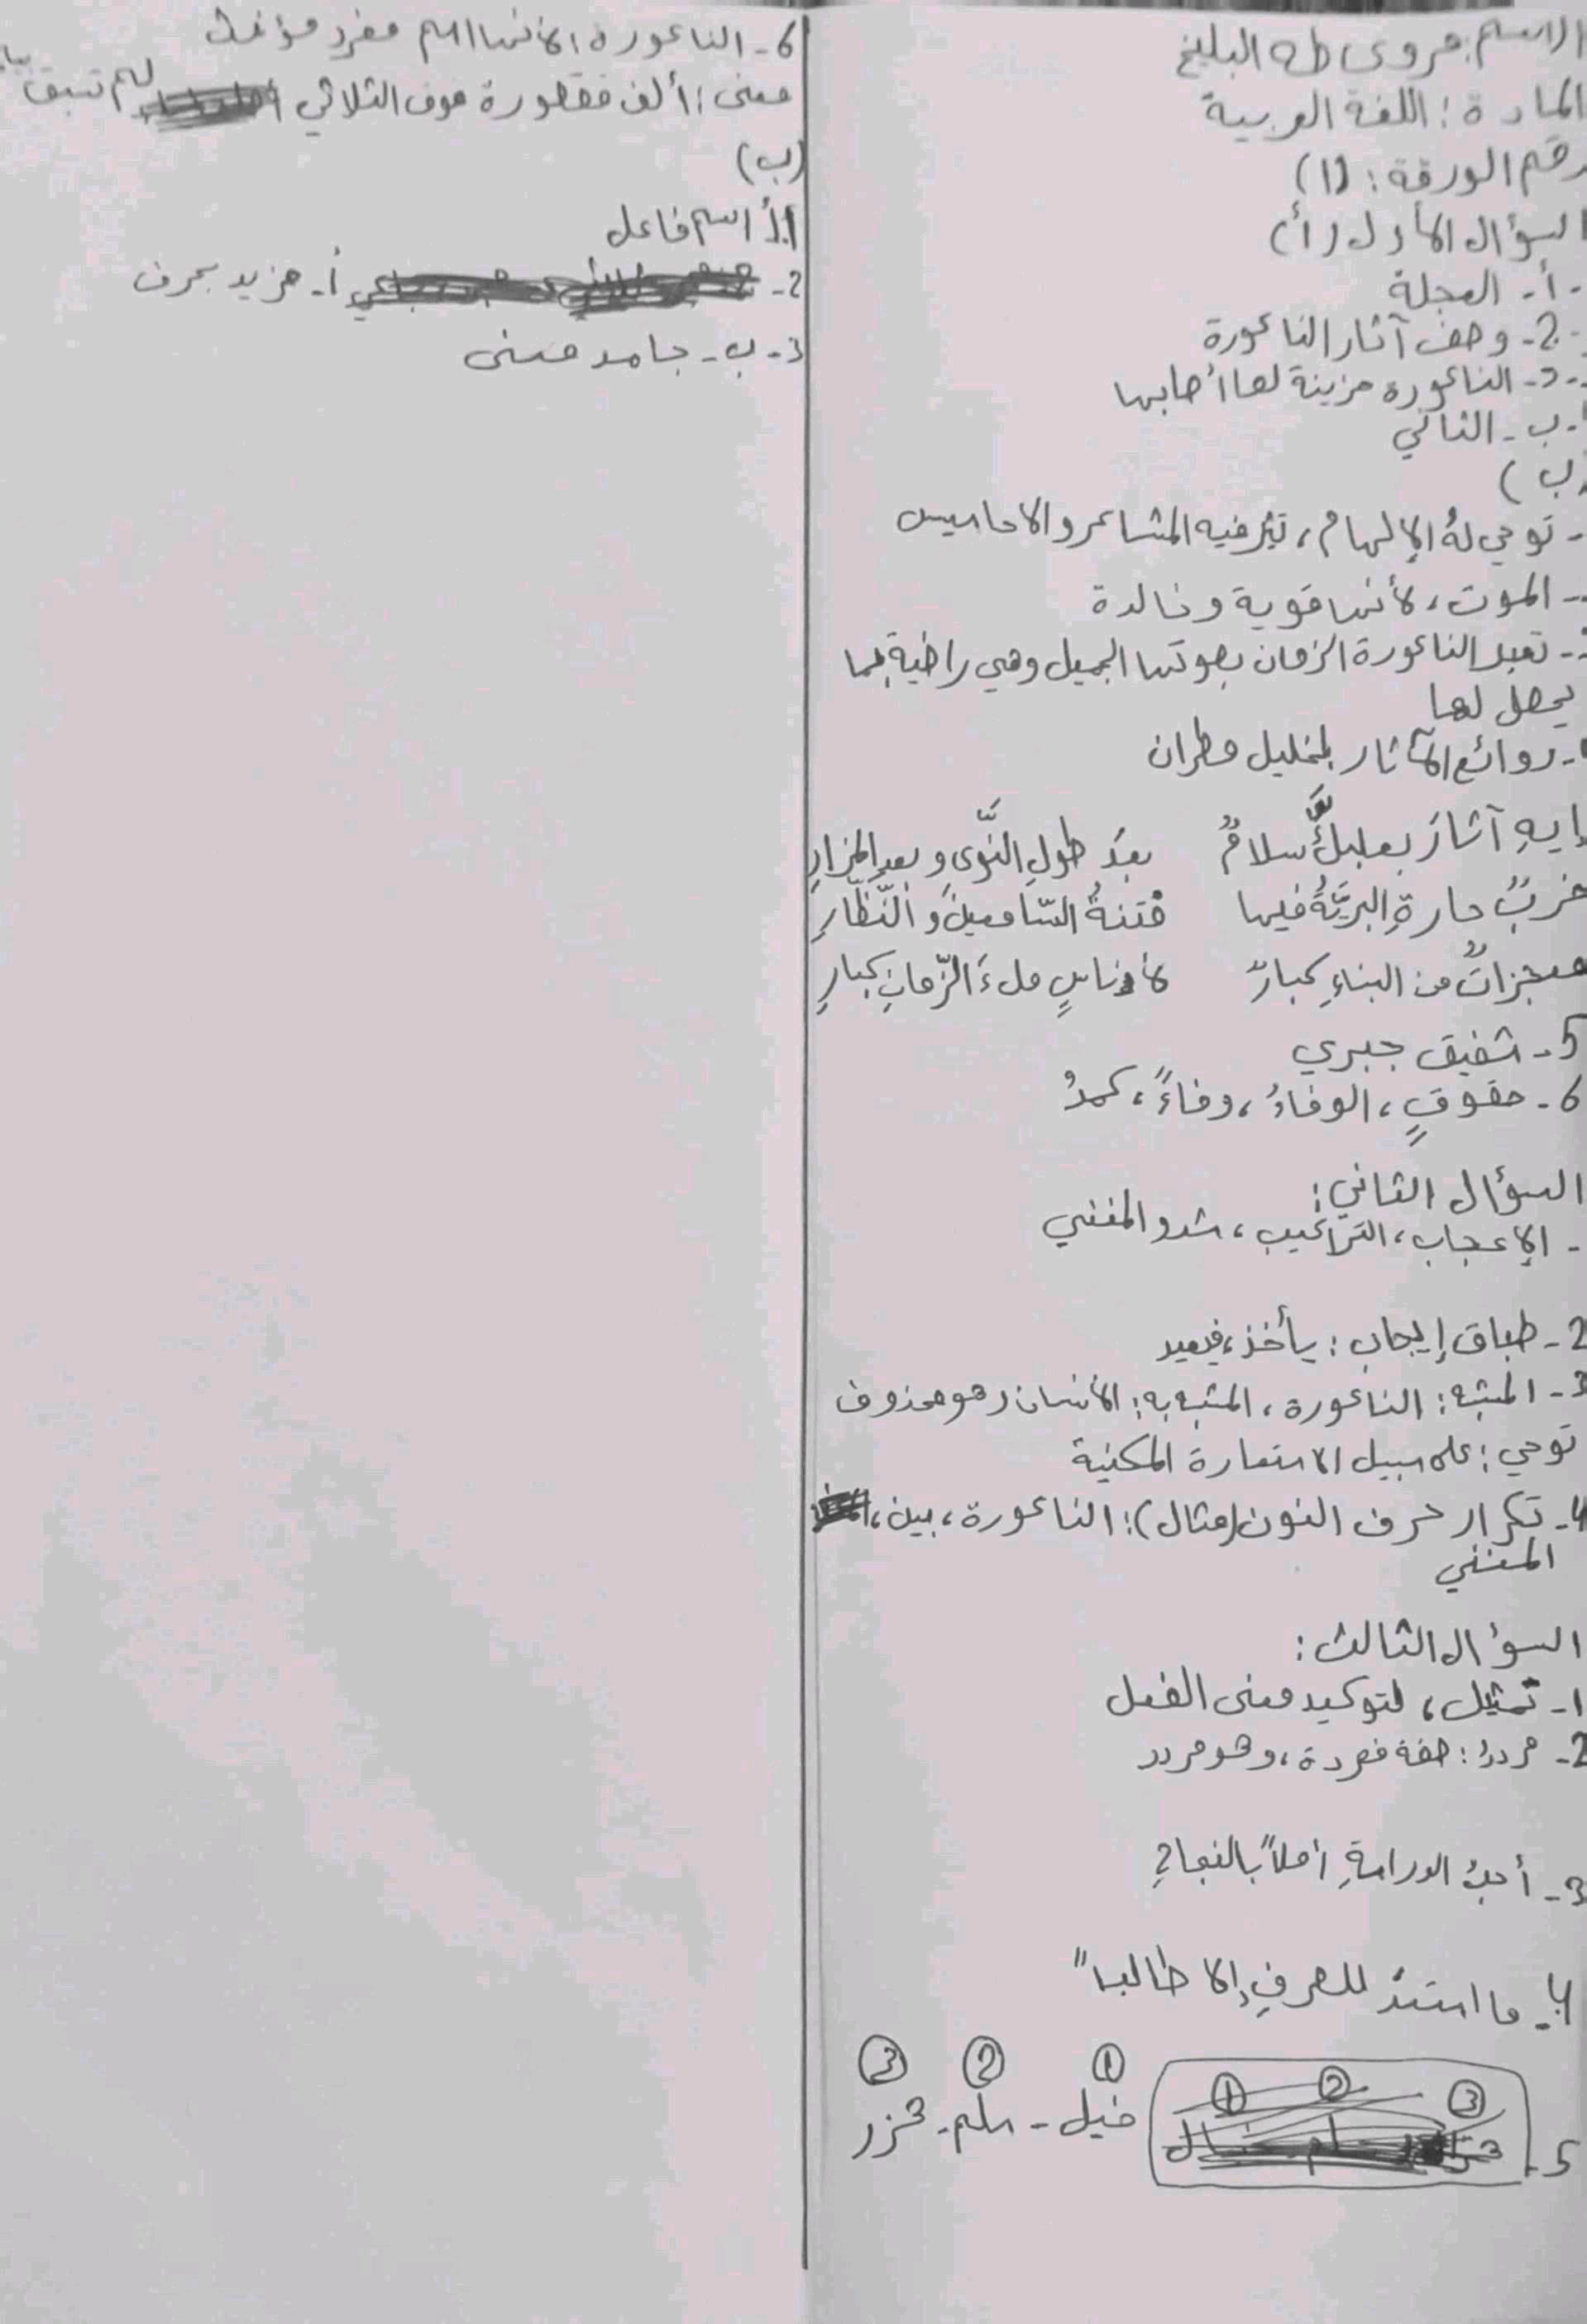 الاسم: مروى طه البليخ
المادة: اللغة العربية
رقم الورقة: (1)
السؤال الأول (أ)
1- أ- العجلة
2- وصف آثار الناعورة
3- الناعورة حزينة لما أصابها
ب- الثاني
(ب)
- توحي له الإلهام، تثير فيه المشاعر والاحاسيس
- الموت، لأنها قوية وخالدة
- تعبد الناعورة الزمان بصوتها الجميل وهي راضية بما
يحصل لها
- روائع الآثار لخليل مطران
إيهِ آثارَ بعلبكَّ سلامٌ بعدَ طولِ النَّوى وبعدِ المزارِ
خربٌ حارةِ البريَّةُ فيها فتنةُ السّامعينَ والنّظّارِ
معجزاتٌ من البناءِ كبارٌ لأناسٍ ملءَ الزّمانِ كبارِ
5- شفيق جبري
6- حقوقٍ، الوفاءُ، وفاءً، كمدُ
السؤال الثاني:
- الإعجاب، التراكيب، شدو المغني
2- طباق إيجاب: يأخذ، فيعيد
3- المشبه: الناعورة، المشبه به: الأنسان وهو محذوف
توحي: على سبيل الاستعارة المكنية
4- تكرار حرف النون (مثال): الناعورة، بين،
المغني
السؤال الثالث:
1- تمثيل، لتوكيد معنى الفعل
2- مردد: صفة مفردة، وهو مردد
3- أحبُ الدراسةِ أملاً بالنجاحِ
4- ما استندُ للصرفِ إلا طالباً
5- ① خيل - ② سلم - ③ تحزر
6- الناعورة، لأنها اسم مفرد مؤنث
معنى: ألف مقصورة فوق الثلاثي لم تسبق بيا
(ب)
1. أ اسم فاعل
2- أ- مزيد بحرف
3- ب- جامد معنى